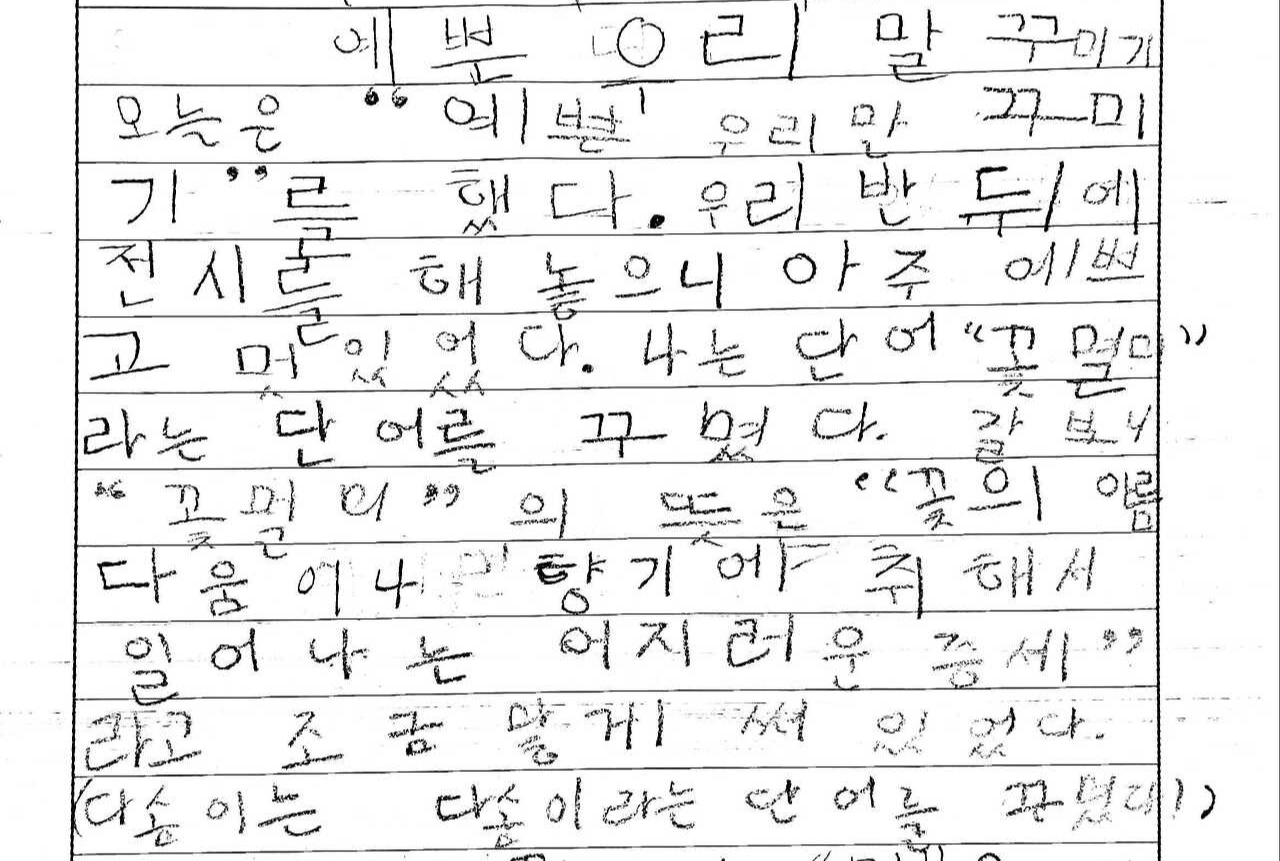 예쁜 우리 말 꾸미기
오늘은 “예쁜 우리 말 꾸미
기”를 했다. 우리 반 뒤에
전시를 해 놓으니 아주 예쁘
고 멋있었다. 나는 단어 “꽃멀미”
라는 단어를 꾸몄다. 잘 보니
“꽃멀미”의 뜻은 “꽃의 아름
다움이나 향기에 취해서
일어나는 어지러운 증세”
라고 조금 많게 써 있었다.
(다솜이는 다솜이라는 단어를 꾸몄다)